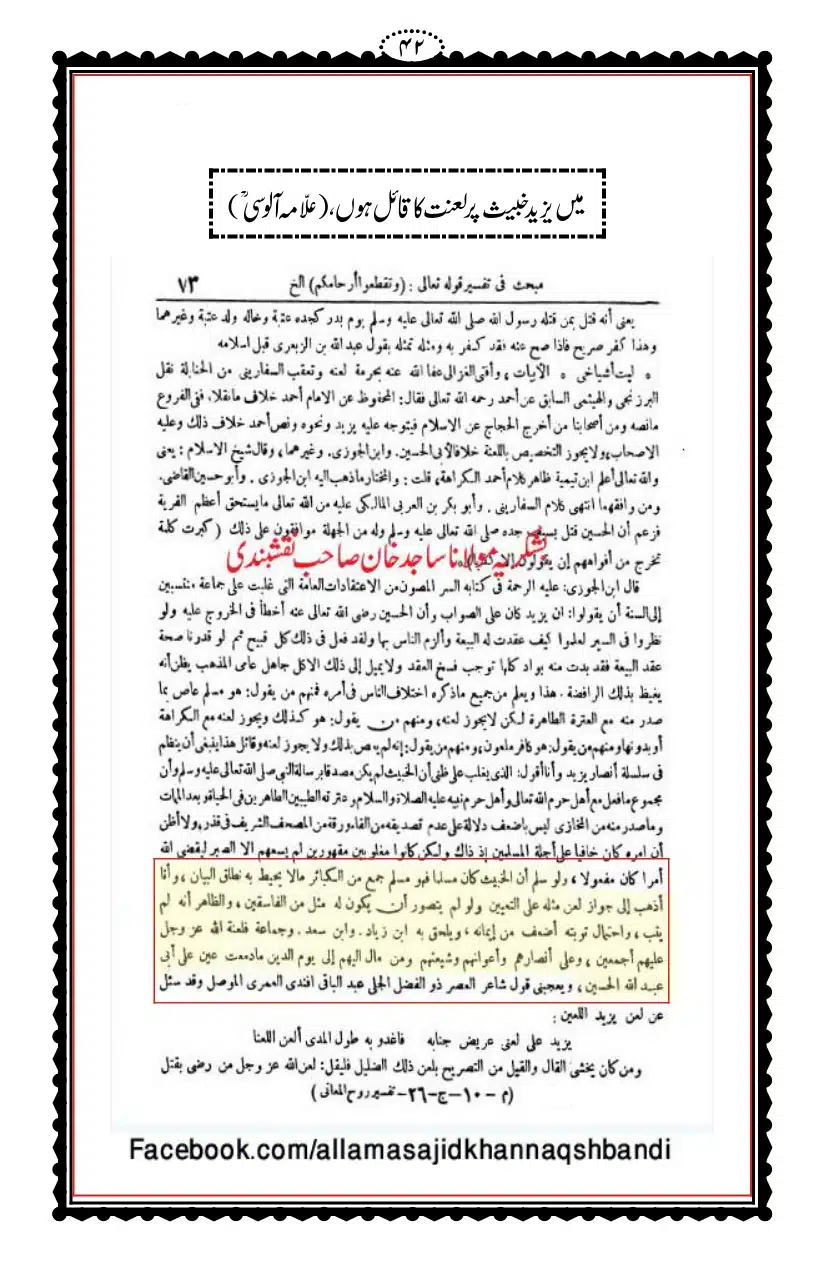 ۴۲
میں یزید خبیث پر لعنت کا قائل ہوں، (علّامہ آلوسیؒ)
مبحث فى تفسير قوله تعالى : (وتقطعوا أرحامكم) الخ ٧٣
يعنى أنه قتل بمن قتله رسول الله صلى الله تعالى عليه وسلم يوم بدر كجده عتبة وخاله ولد عتبة وغيرهما
وهذا كفر صريح فاذا صح عنه فقد كفر به ومثله تمثله بقول عبد الله بن الزبعرى قبل اسلامه
* ليت أشياخى * الآيات ، وأفتى الغزالى عفا الله عنه بحرمة لعنه وتعقب السفارينى من الحنابلة نقل
البرزنجى والهيثمى السابق عن أحمد رحمه الله تعالى فقال : المحفوظ عن الامام أحمد خلاف مانقلا، ففى الفروع
مانصه ومن أصحابنا من أخرج الحجاج عن الاسلام فيتوجه عليه يزيد ونحوه ونص أحمد خلاف ذلك وعليه
الاصحاب، ولا يجوز التخصيص باللعنة خلافا لأبى الحسين. وابن الجوزى. وغيرهما، وقال شيخ الاسلام : يعنى
والله تعالى أعلم ابن تيمية ظاهر كلام أحمد الكراهة، قلت : والمختار ماذهب اليه ابن الجوزى . وأبو حسين القاضى.
ومن وافقهما انتهى كلام السفارينى . وأبو بكر بن العربى المالكى عليه من الله تعالى مايستحق أعظم الفرية
فزعم أن الحسين قتل بسيف جده صلى الله تعالى عليه وسلم وله من الجهلة موافقون على ذلك (كبرت كلمة
تخرج من أفواههم إن يقولون إلا كذبا) .
بشکریہ مولانا ساجد خان صاحب نقشبندی
قال ابن الجوزى : عليه الرحمة فى كتابه السر المصون من الاعتقادات العامة التى غلبت على جماعة منتسبين
إلى السنة أن يقولوا : ان يزيد كان على الصواب وأن الحسين رضى الله تعالى عنه أخطأ فى الخروج عليه ولو
نظروا فى السير لعلموا كيف عقدت له البيعة وألزم الناس بها ولقد فعل فى ذلك كل قبيح ثم لو قدرنا صحة
عقد البيعة فقد بدت منه بواد كلها توجب فسخ العقد ولا يميل إلى ذلك الا كل جاهل عامى المذهب يظن أنه
يغيظ بذلك الرافضة . هذا ويعلم من جميع ماذكره اختلاف الناس فى أمره فمنهم من يقول : هو مسلم عاص بما
صدر منه مع العترة الطاهرة لكن لا يجوز لعنه، ومنهم من يقول : هو كذلك ويجوز لعنه مع الكراهة
أو بدونها ومنهم من يقول : هو كافر ملعون، ومنهم من يقول : إنه لم يعص بذلك ولا يجوز لعنه وقائل هذا ينبغى أن ينظم
فى سلسلة أنصار يزيد وأنا أقول : الذى يغلب على ظنى أن الخبيث لم يكن مصدقا برسالة النبى صلى الله تعالى عليه وسلم وأن
مجموع مافعل مع أهل حرم الله تعالى وأهل حرم نبيه عليه الصلاة والسلام وعترته الطيبين الطاهرين فى الحياة وبعد الممات
وما صدر منه من المخازى ليس باضعف دلالة على عدم تصديقه من القاء ورقة من المصحف الشريف فى قذر، ولا أظن
أن امره كان خافيا على أجلة المسلمين إذ ذاك ولكن كانوا مغلوبين مقهورين لم يسعهم الا الصبر ليقضى الله
أمرا كان مفعولا ، ولو سلم أن الخبيث كان مسلما فهو مسلم جمع من الكبائر مالا يحيط به نطاق البيان ، وأنا
أذهب إلى جواز لعن مثله على التعيين ولو لم يتصور أن يكون له مثل من الفاسقين ، والظاهر أنه لم
يتب ، واحتمال توبته أضعف من إيمانه ، ويلحق به ابن زياد . وابن سعد . وجماعة فلعنة الله عز وجل
عليهم أجمعين ، وعلى أنصارهم وأعوانهم وشيعتهم ومن مال اليهم إلى يوم الدين مادمعت عين على أبى
عبد الله الحسين ، ويعجبنى قول شاعر العصر ذو الفضل الجلى عبد الباقى افندى العمرى الموصل وقد سئل
عن لعن يزيد اللعين :
يزيد على لعنى عريض جنابه فاغدو به طول المدى ألعن اللعنا
ومن كان يخشى القال والقيل من التصريح بلعن ذلك الضليل فليقل : لعن الله عز وجل من رضى بقتل
(م – ١٠ – ج – ٢٦ – تفسير روح المعانى)
Facebook.com/allamasajidkhannaqshbandi